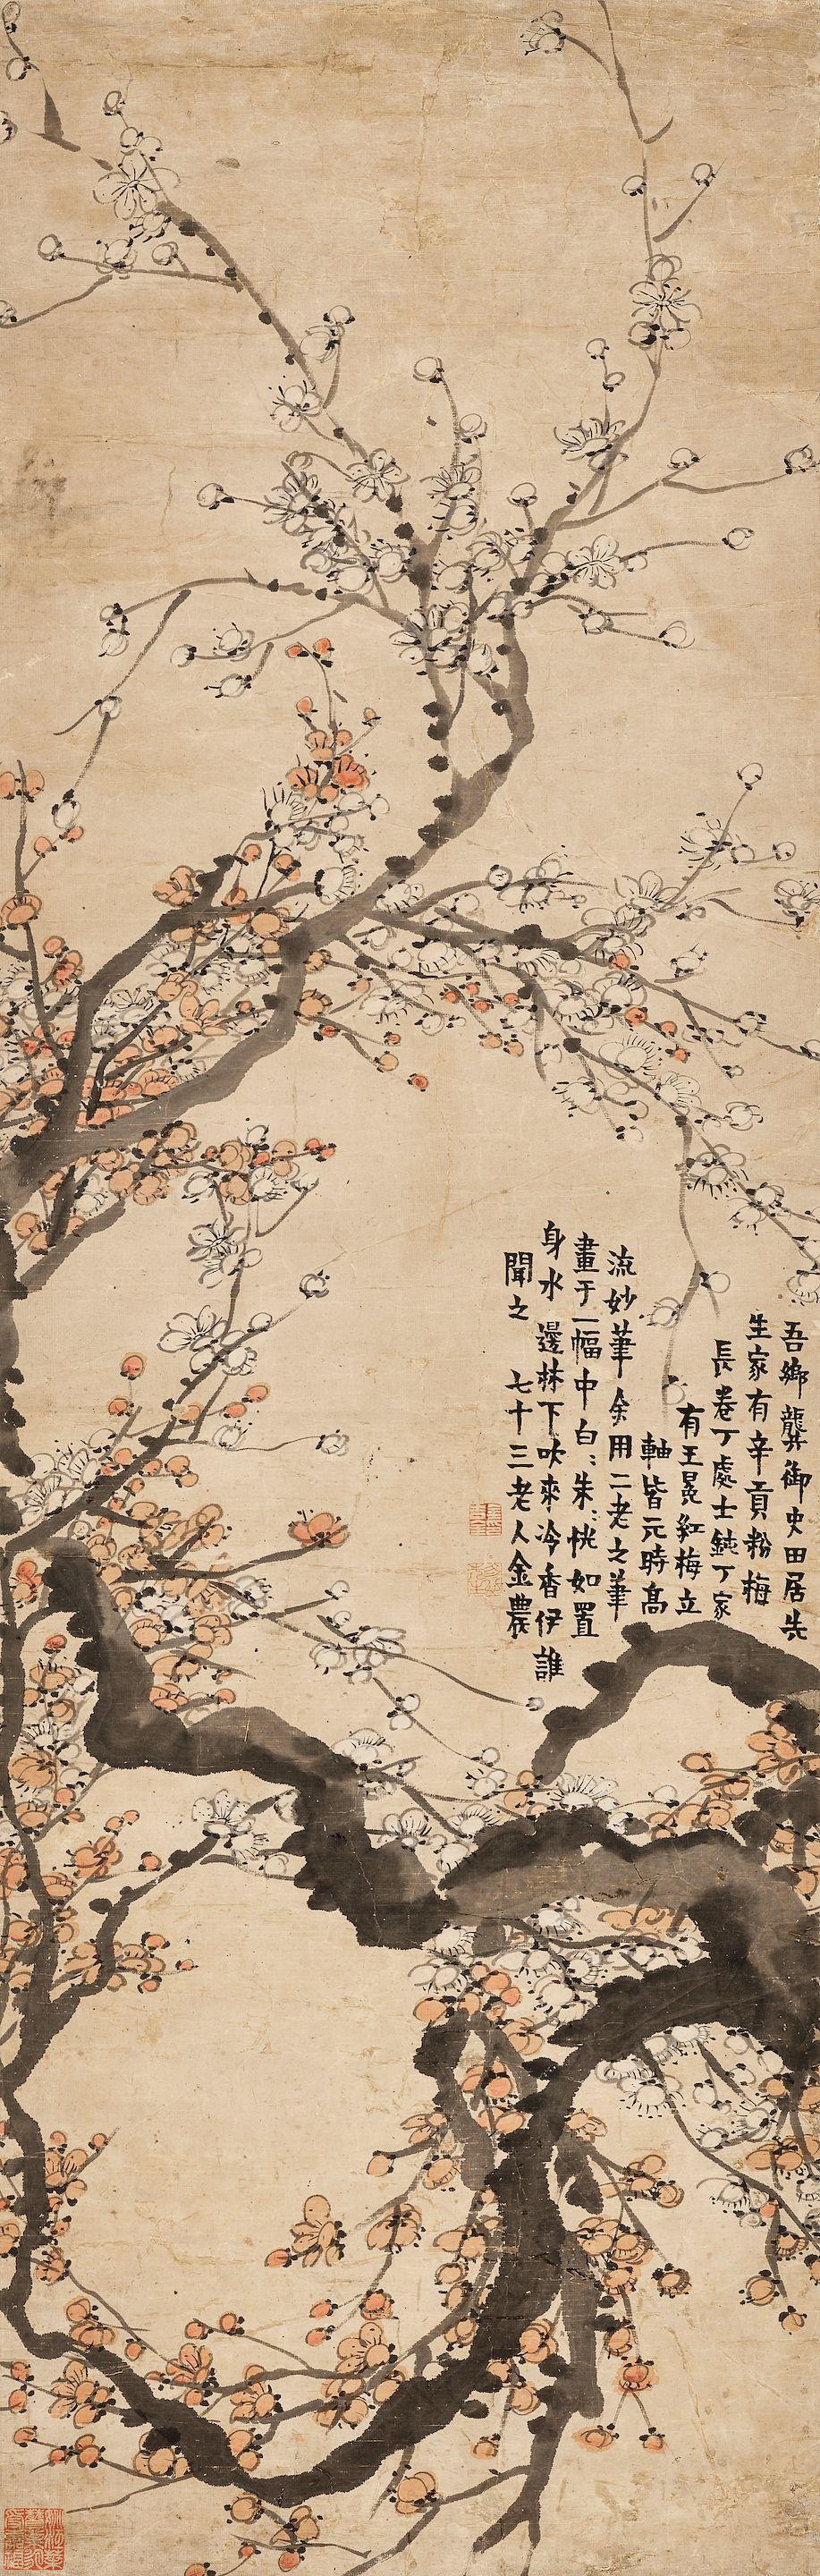 吾鄉龔御史田居先
生家有辛貢粉梅
長卷丁處士鈍丁家
有王冕紅梅立
軸皆元時高
流妙筆余用二老之筆
畫于一幅中白：朱：恍如置
身水邊林下吹來冷香伊誰
聞之　七十三老人金農